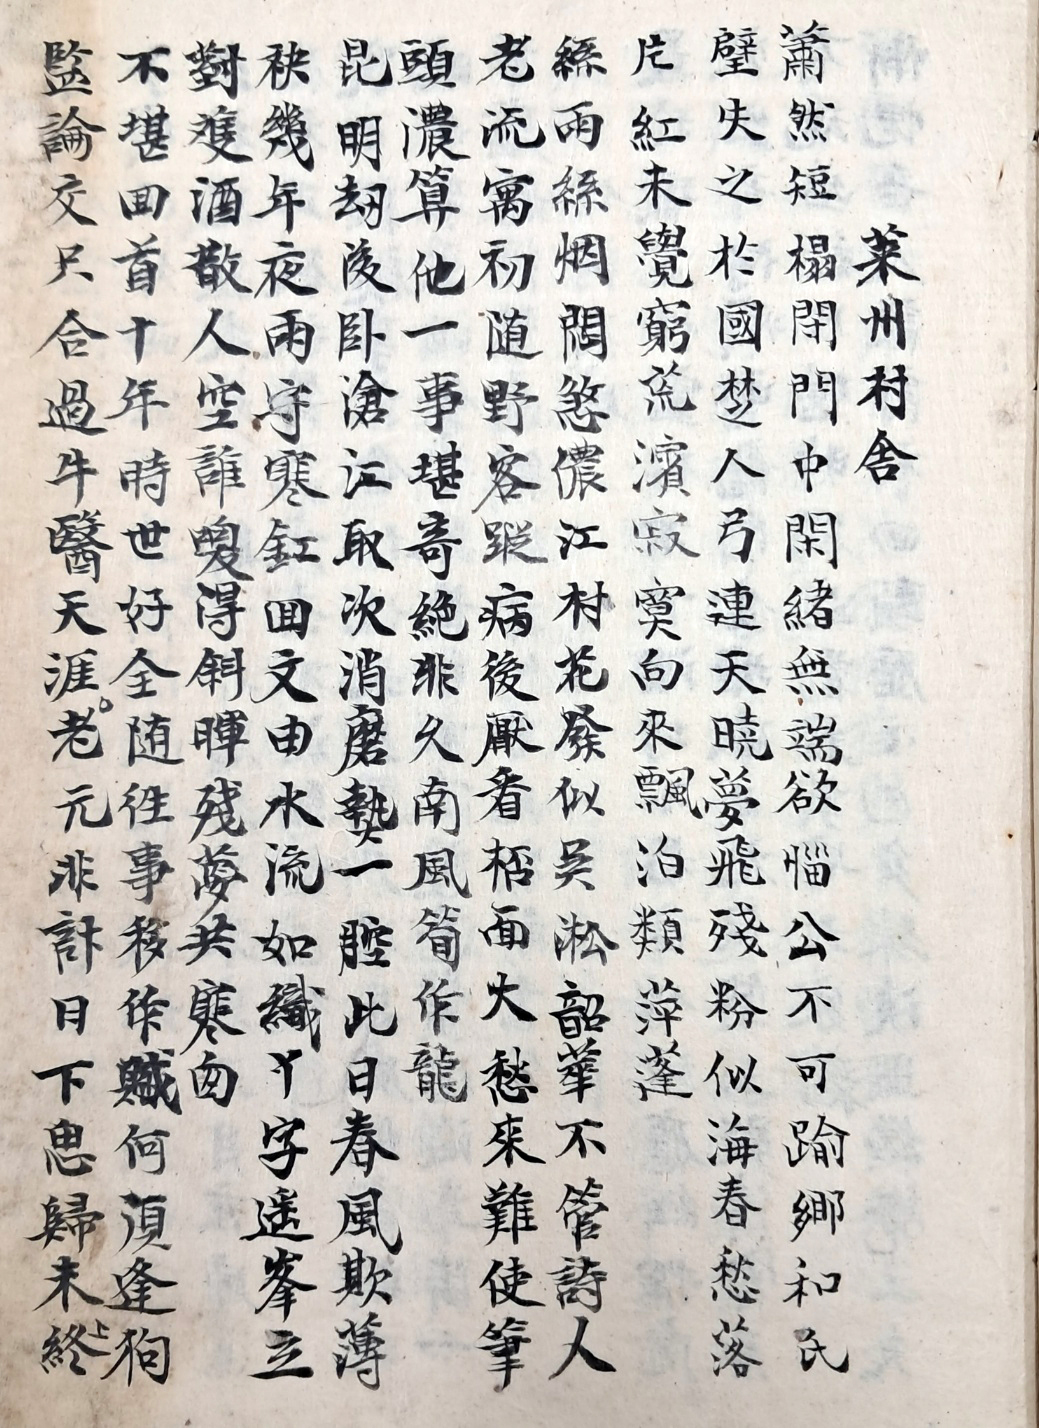 萊州村舍
蕭然短榻閉門中閑緒無端欲惱公不可踰鄉和氏
璧失之於國楚人弓連天曉夢飛殘粉似海春愁落
片紅未覺窮荒濱寂寞向來飄泊類萍蓬
絲雨絲烟悶煞儂江村花發似吳淞韶華不管詩人
老流寓初随野客蹤病後厭看桮面大愁來難使筆
頭濃算他一事堪奇絕非久南風筍作龍
昆明刼後卧滄江取次消磨執一腔此日春風欺薄
秧幾年夜雨守寒釭囬文由水流如織丫字遥峯立
對雙酒散人空誰嗄得斜暉殘夢共寒囱
不堪囬首十年時世好全随徃事移作賊何湏逢狗
監論交只合過牛醫天涯老元非計日下思歸未終